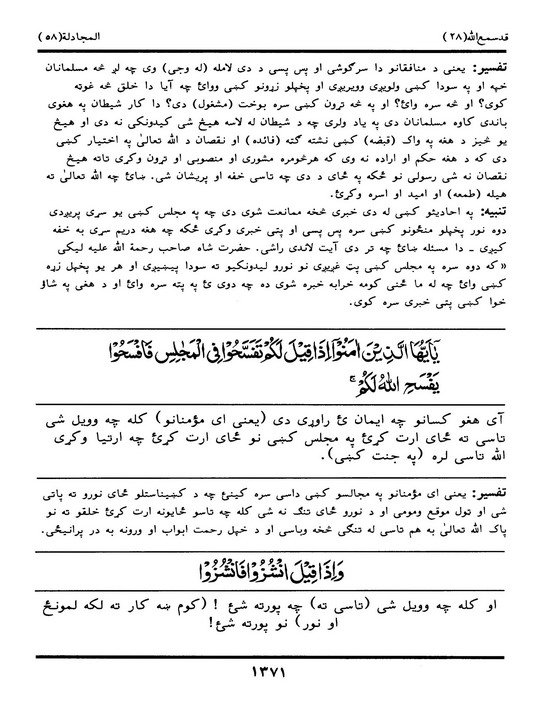 قدسمع الله (٢٨) المجادلة (٥٨)
تفسیر: یعنی د منافقانو دا سرګوشی او پس پسی د دی لامله (له وجی) وی چه لږ څه مسلمانان
خپه او په سودا کښی ولویږی وویریږی او پخپلو زړونو کښی ووائی چه آیا دا خلق څه غوټه
کوی؟ او څه سره وائی؟ او په څه تړون کښی سره بوخت (مشغول) دی؟ دا کار شیطان په هغوی
باندی کاوه مسلمانان دی په یاد ولری چه د شیطان له لاسه هیڅ شی کیدونکی نه دی او هیڅ
یو څیز د هغه په واک (قبضه) کښی نشته ګټه (فائده) او نقصان د الله تعالیٰ په اختیار کښی
دی که د هغه حکم او اراده نه وی که هرڅومره مشوری او منصوبی او تړون وکړی تاته هیڅ
نقصان نه شی رسولی نو ځکه په ځای د دی چه تاسی خفه او پریشان شی. ښائی چه الله تعالیٰ ته
هیله (طمعه) او امید او اسره وکړئ.
تنبیه: په احادیثو کښی له دی خبری څخه ممانعت شوی دی چه په مجلس کښی یو سری پریږدی
دوه نور پخپلو منځونو کښی سره پس پسی او پتی خبری وکړی ځکه چه هغه دریم سری به خفه
کیږی ـ دا مسئله ښائی چه تر دی آیت لاندی راشی. حضرت شاه صاحب رحمة الله علیه لیکی
«که دوه سره په مجلس کښی پټ غږیږی نو نورو لیدونکیو ته سودا پیښیږی او هر یو پخپل زړه
کښی وائی چه له ما څنی کومه خرابه خبره شوی ده چه دوی ئی په پته سره وائی او د هغی په شاؤ
خوا کښی پتی خبری سره کوی.
يٰۤاَيُّهَا الَّذِيْنَ اٰمَنُوْۤا اِذَا قِيْلَ لَكُمْ تَفَسَّحُوْا فِى الْمَجٰلِسِ فَافْسَحُوْا
يَفْسَحِ اللّٰهُ لَكُمْ ۚ
آی هغو کسانو چه ایمان ئ راوړی دی (یعنی ای مؤمنانو) کله چه وویل شی
تاسی ته ځای ارت کړئ په مجلس کښی نو ځای ارت کړئ چه ارتیا وکړی
الله تاسی لره (په جنت کښی).
تفسیر: یعنی ای مؤمنانو په مجالسو کښی داسی سره کینئ چه د کښیناستلو ځای نورو ته پاتی
شی او تول موقع ومومی او د نورو ځای تنګ نه شی کله چه تاسو ځایونه ارت کړئ خلقو ته نو
پاک الله تعالیٰ به هم تاسی له تنګی څخه وباسی او د خپل رحمت ابواب او ورونه به در پرانیځی.
وَاِذَا قِيْلَ انْشُزُوْا فَانْشُزُوْا
او کله چه وویل شی (تاسی ته) چه پورته شئ ! (کوم ښه کار ته لکه لمونځ
او نور) نو پورته شئ!
١٣٧١